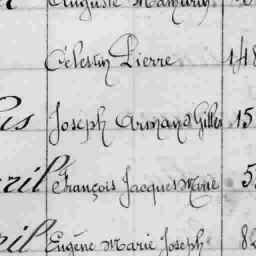 Auguste
Célestin Pierre 148
Joseph Armand Gilles 15
ril François Jacques Marie 5
ril Eugène Marie Joseph 82